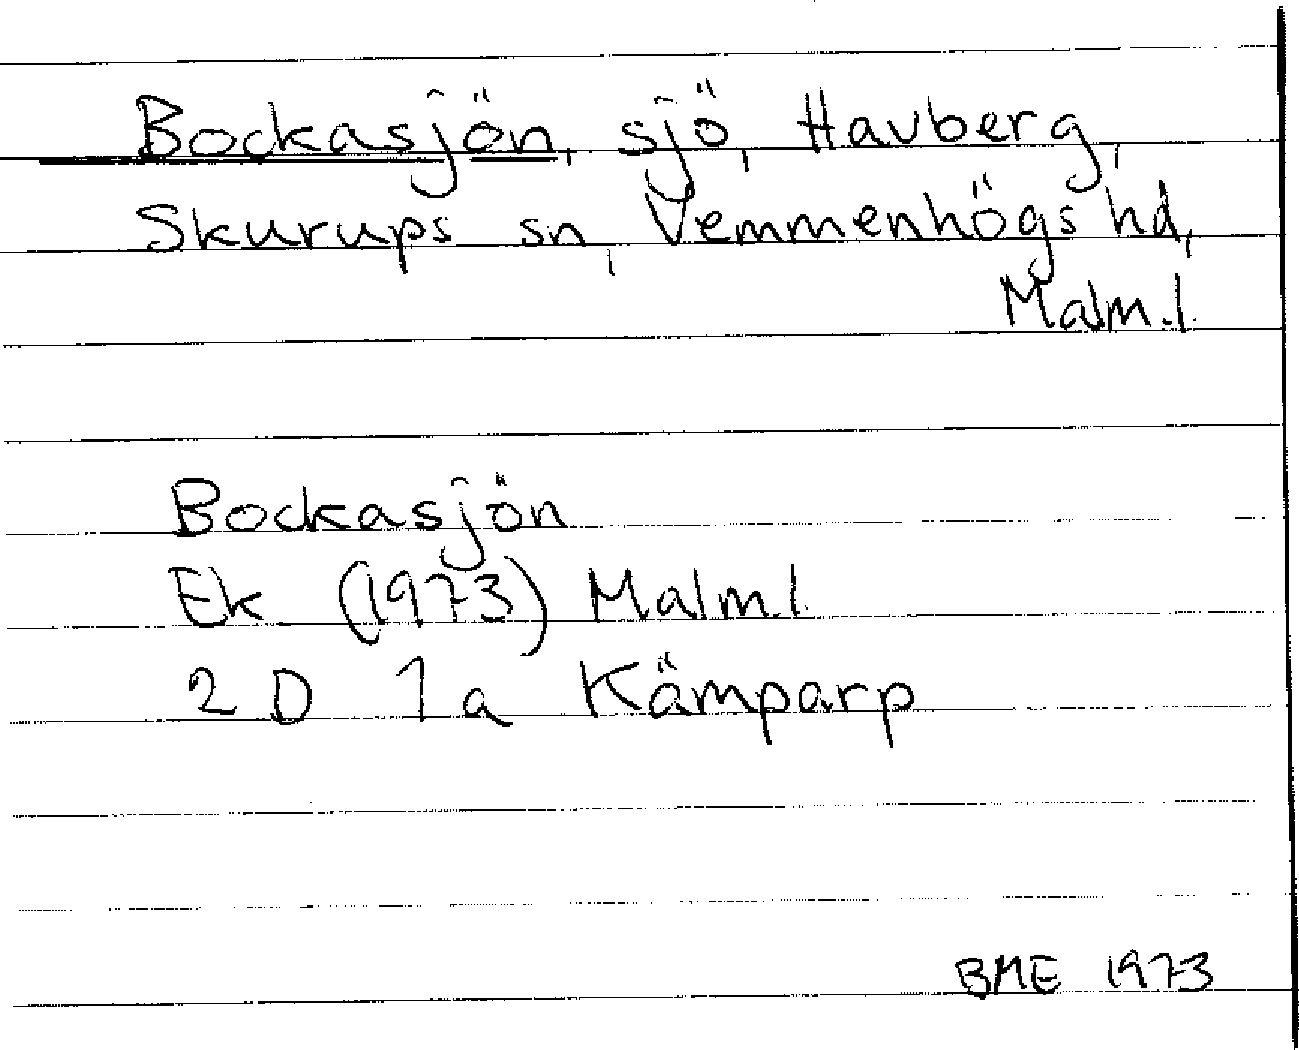 Bockasjön, sjö, Havberg,
Skurups sn, Vemmenhögs hd,
Malm.l.
Bockasjön
Ek (1973) Malm.l.
2 D 1a Kämparp
BME 1973